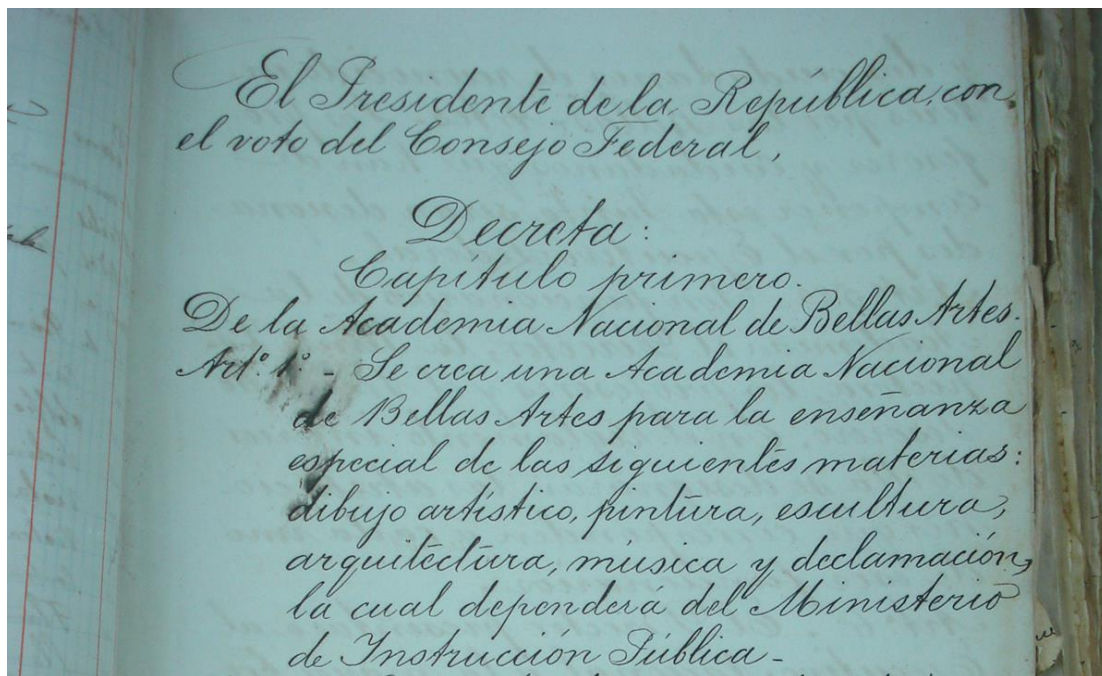 El Presidente de la República, con
el voto del Consejo Federal,
Decreta:
Capítulo primero.
De la Academia Nacional de Bellas Artes.
Art.º 1.º - Se crea una Academia Nacional
de Bellas Artes para la enseñanza
especial de las siguientes materias:
dibujo artístico, pintura, escultura,
arquitectura, música y declamación,
la cual dependerá del Ministerio
de Instrucción Pública -